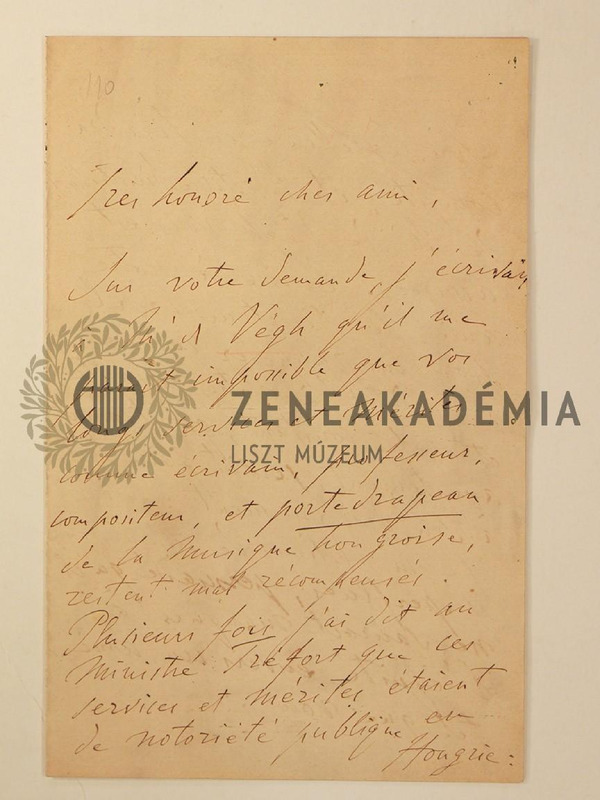 110
Très honoré cher ami,
Sur votre demande, j'écrivais
à Mr de Végh qu'il me
parait impossible que vos
longs services et mérites
comme écrivain, professeur,
compositeur, et portedrapeau
de la Musique hongroise,
restent mal récompensés.
Plusieurs fois j'ai dit au
Ministre Tréfort que ces
services et mérites étaient
de notoriété publique en
Hongrie:
ZENEAKADÉMIA
LISZT MÚZEUM